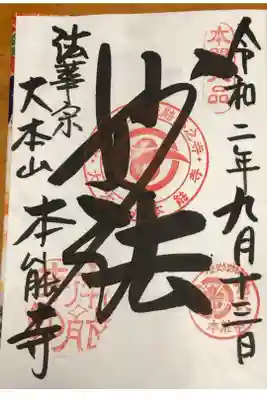 令和二年九月十三日
妙法
法華宗
大本山 本能寺